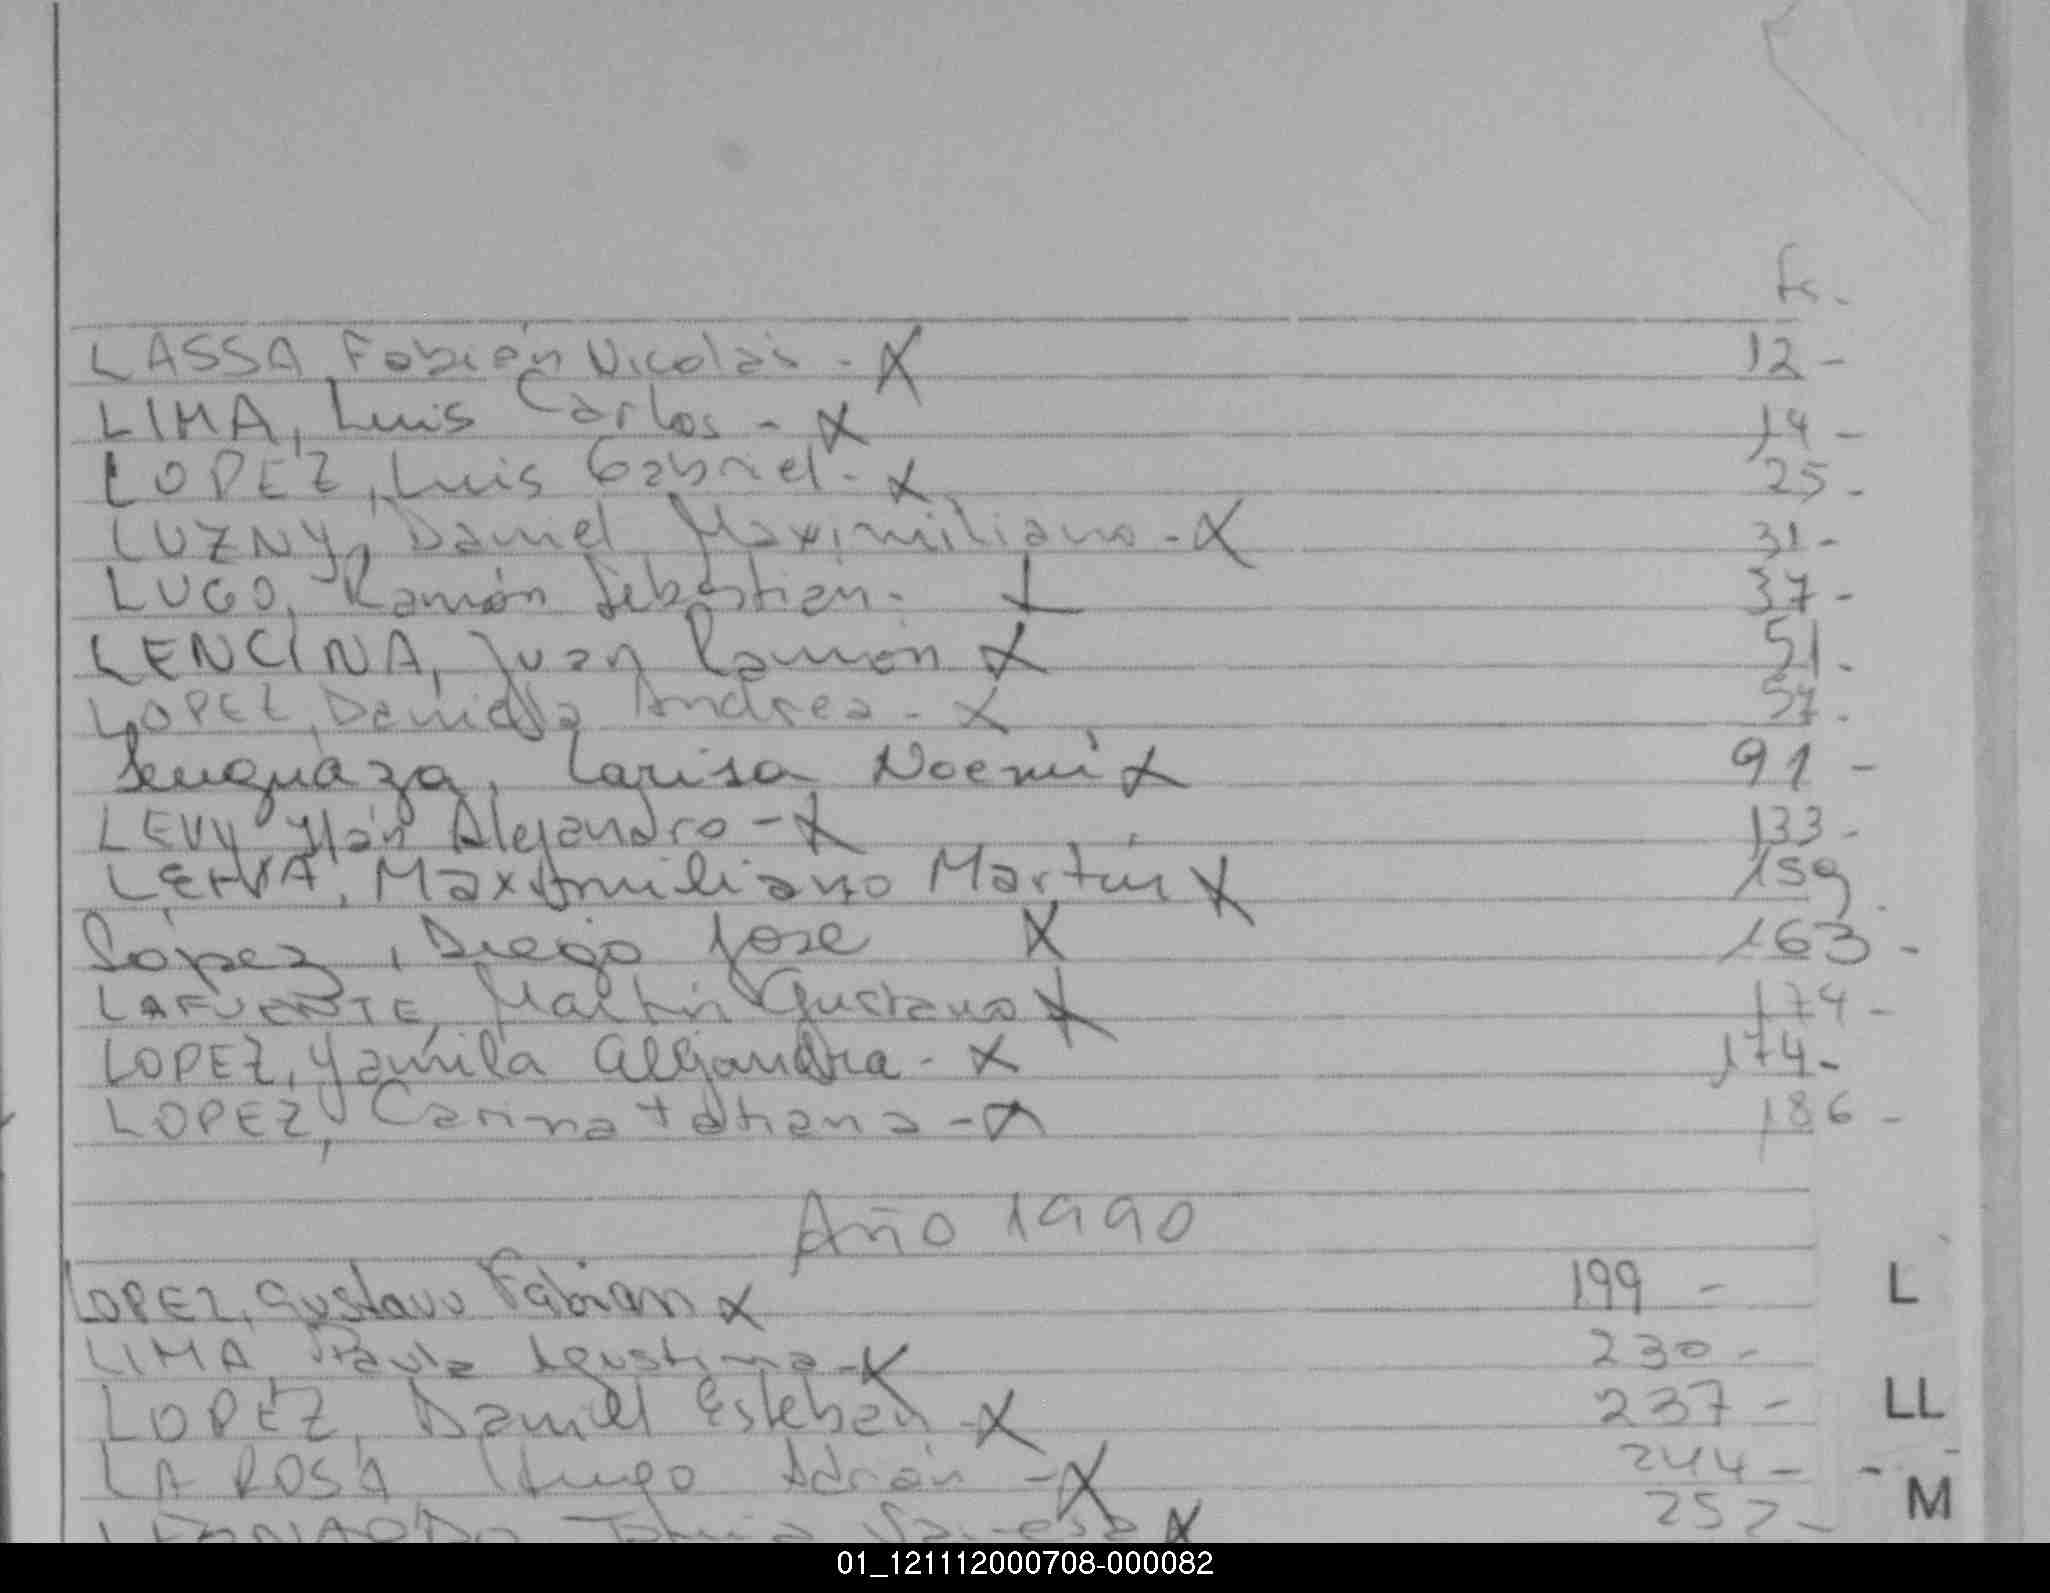 Fs.
LASSA, Fabián Nicolás - X 12 -
LIMA, Luis Carlos - X 14 -
LOPEZ, Luis Gabriel - X 25 -
LUZNY, Daniel Maximiliano - X 31 -
LUGO, Ramón Sebastian - X 37 -
LENCINA, Juan Ramon X 51 -
LOPEZ, Daniela Andrea - X 57 -
Lenguaza, Larisa Noemí X 91 -
LEVY Ilán Alejandro - X 133 -
LEIVA, Maximiliano Martín X 159 -
López, Diego Jose X 163 -
LAFUENTE, Martin Gustavo X 174 -
LOPEZ, Yamila Alejandra - X 174 -
LOPEZ, Carina Tatiana - X 186 -
Año 1990
LOPEZ, Gustavo Fabian X 199 -
L
LIMA, Paula Agustina - X 230 -
LOPEZ, Daniel Esteban - X 237 -
LL
LA ROSA Hugo Adrián - X 244 -
M
X 252 -
01_121112000708-000082